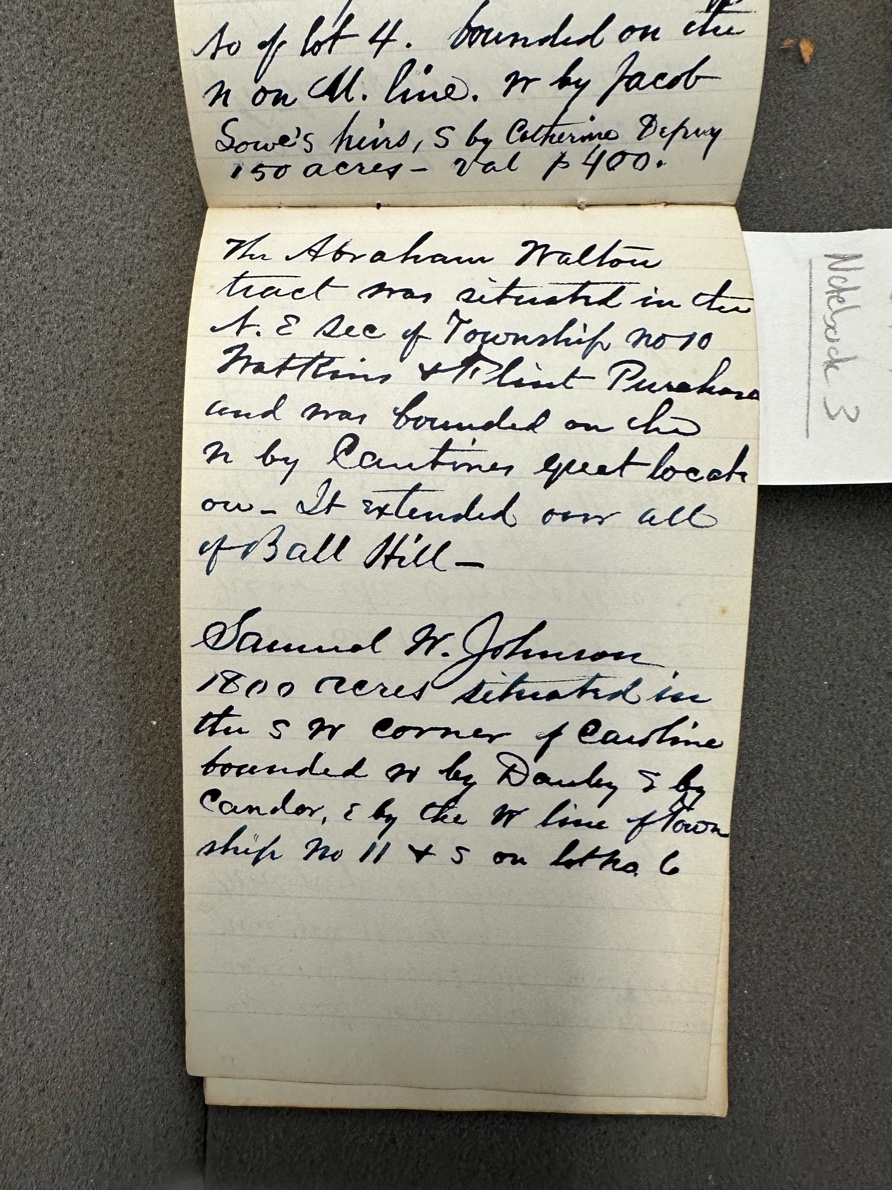 So of lot 4. bounded on the
n on M. line. W by Jacob
Sowe's heirs, S by Catherine Depuy
150 acres - Val $400.
The Abraham Walton
tract was situated in the
N. E Sec of Township no 10
Watkins & Flint Purchase
and was bounded on the
n by Cantines great locati
on - It extended over all
of Ball Hill -
Samuel W. Johnson
1800 acres situated in
the S W corner of Caroline
bounded W by Danby S by
Candor, E by the W line of Town
ship No 11 & S on lot no. 6
Notebook 3